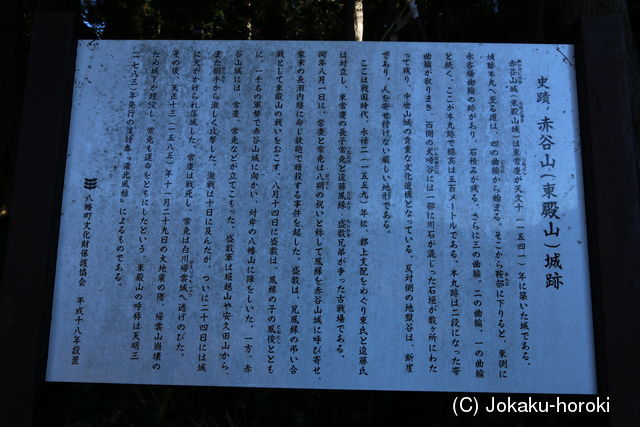 史蹟 赤谷山(東殿山)城跡
赤谷山城(東殿山城)は東常慶が天文十(一五四一)年に築いた城である。
城跡本丸へ至る道は、四の曲輪から始まる。そこから鞍部に下りると、東側に
水呑場曲輪の跡があり、石積みが残る。さらに三の曲輪、二の曲輪、一の曲輪
と続く。ここが本丸跡で標高は五百メートルである。本丸跡は二段になった帯
曲輪が取りまき、西側の犬啼谷には一部に川石が混じった石垣が数ヶ所にわた
って残り、中世山城の貴重な文化遺構となっている。反対側の地獄谷は、断崖
であり、人を寄せ付けない厳しい地形である。
ここは戦国時代、永禄二(一五五九)年に、郡上支配をめぐり東氏と遠藤氏
は対立し、東常慶の長子常尭と遠藤胤縁、盛数兄弟が争った古戦場である。
同年八月一日に、常慶と常尭は八朔の祝いと称して胤縁を赤谷山城に呼び寄せ、
家来の長瀬内膳に命じ鉄砲で暗殺する事件を起した。盛数は、兄胤縁の弔い合
戦として東殿山の戦いをおこす。八月十四日に盛数は、胤縁の子の胤俊ととも
に、一千名の軍勢で赤谷山城に向かい、対岸の八幡山に陣をしいた。一方、赤
谷山城には、常慶、常尭などが立てこもった。盛数軍は堀越山や安久田山から、
また搦手から激しく攻撃した。激戦は十日に及んだが、ついに二十四日には城
に火がかけられ落城した。常慶は戦死し、常尭は白川帰雲城へ逃げのびた。
その後、天正十三(一五八五)年十一月二十九日の大地震の際、帰雲山崩壊の
ため城下が埋没し、常尭も運命をともにしたという。東殿山の呼称は天明三
(一七八三)年発行の漢詩集「濃北風雅」によるものである。
八幡町文化財保護協会 平成十八年設置
(C) Jokaku-horoki